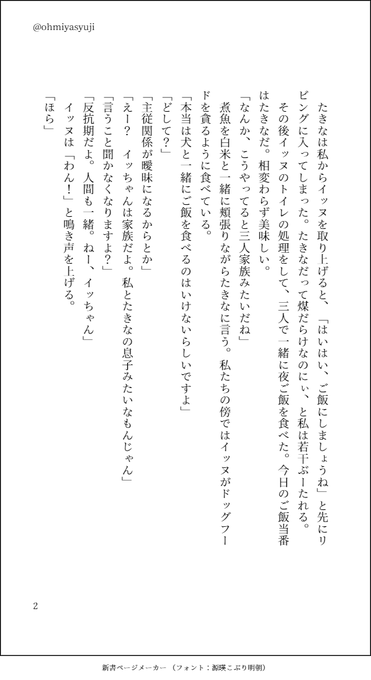 @ohmiyasyuji
　たきなは私からイッヌを取り上げると、「はいはい、ご飯にしましょうね」と先にリ
ビングに入ってしまった。たきなだって煤だらけなのにぃ、と私は若干ぶーたれる。
　その後イッヌのトイレの処理をして、三人で一緒に夜ご飯を食べた。今日のご飯当番
はたきなだ。相変わらず美味しい。
「なんか、こうやってると三人家族みたいだね」
　煮魚を白米と一緒に頬張りながらたきなに言う。私たちの傍ではイッヌがドッグフー
ドを貪るように食べている。
「本当は犬と一緒にご飯を食べるのはいけないらしいですよ」
「どして？」
「主従関係が曖昧になるからとか」
「えー？　イッちゃんは家族だよ。私とたきなの息子みたいなもんじゃん」
「言うこと聞かなくなりますよ？」
「反抗期だよ。人間も一緒。ねー、イッちゃん」
　イッヌは「わん！」と鳴き声を上げる。
「ほら」
2
新書ページメーカー（フォント：源暎こぶり明朝）